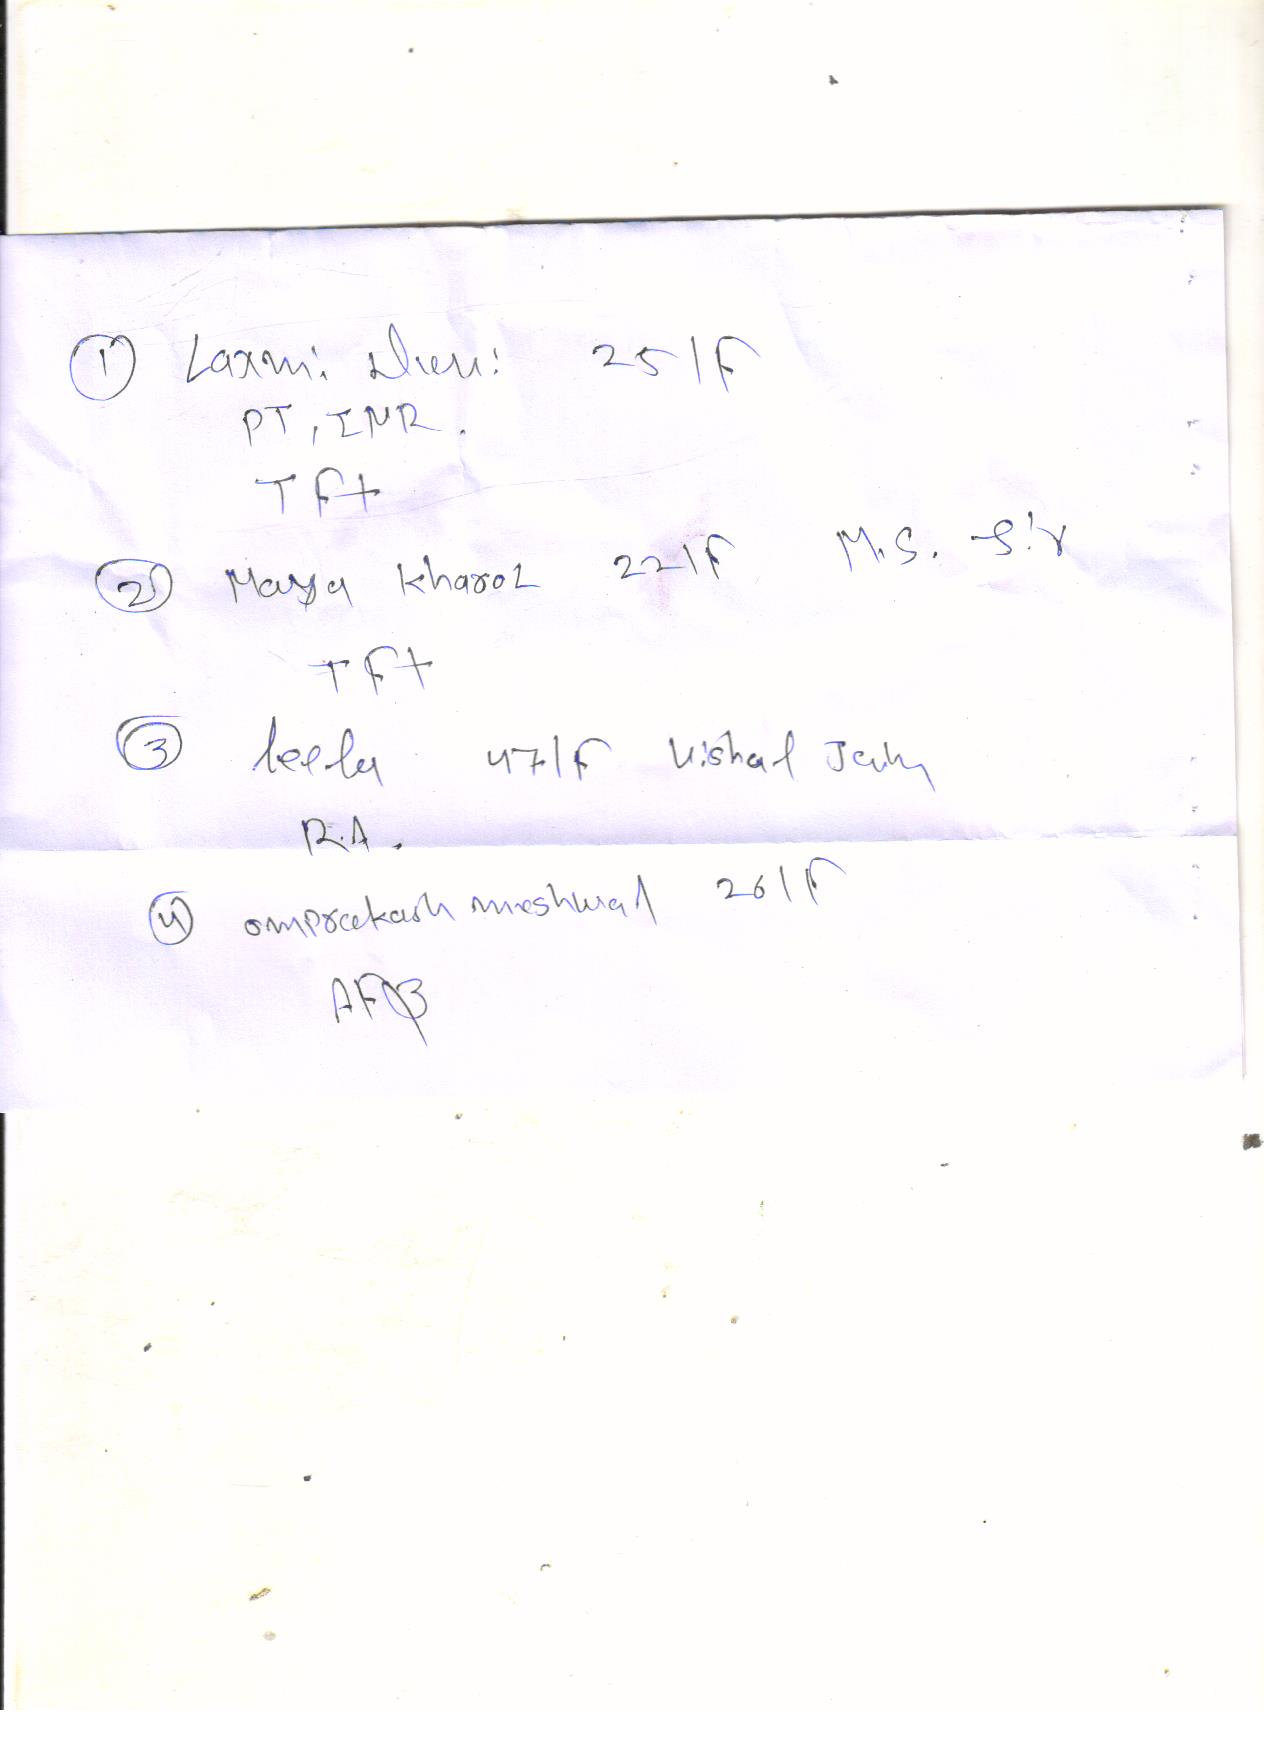 ① Laxmi Devi 25/F
PT, INR.
TFt
② Maya Kharol 22/F M.S. Sir
TFt
③ leela 47/F Vishal Jain
R.A.
④ omprakash meshwal 26/F
AFB